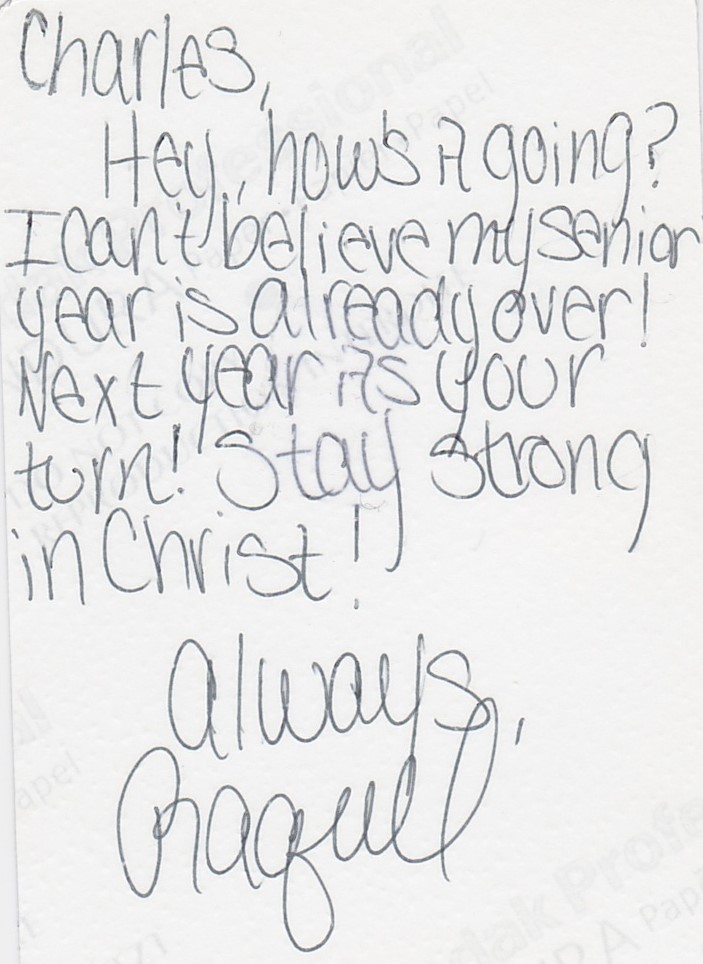 Charles,
Hey, how's it going?
I can't believe my senior
year is already over!
Next year is your
turn! Stay strong
in Christ!
Always,
Raquel